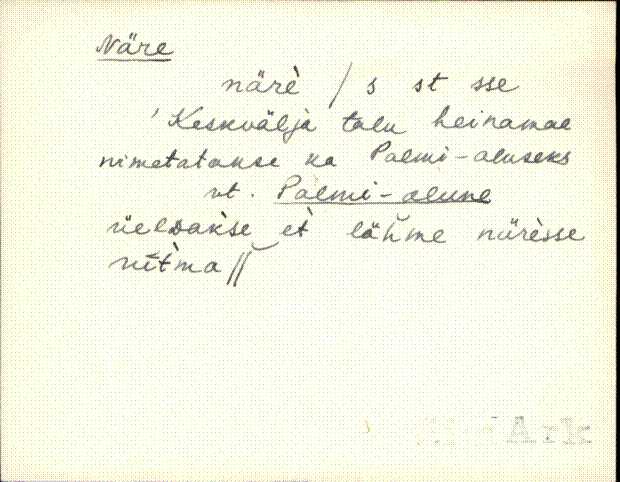 Näre
närè / s st sse
' Keskvälja talu heinamaa
nimetatakse ka Palmi-aluseks
vt. Palmi-alune
üeldakse et lähme näresse
nitma //